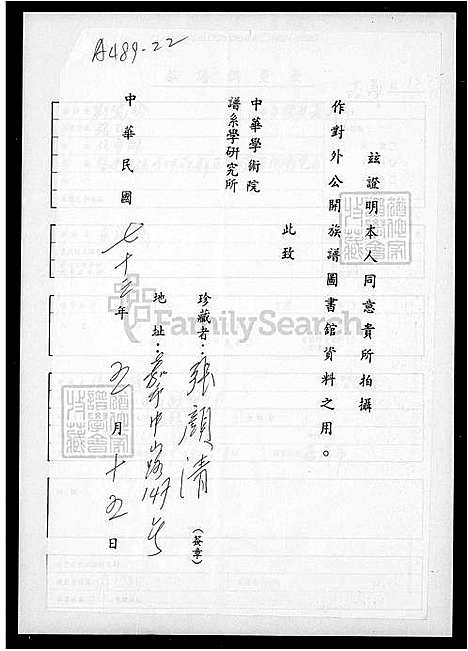 A489-22
茲證明本人同意貴所拍攝
作對外公開族譜圖書館資料之用。
此致
中華學術院
譜系學研究所
珍藏者：張顏清（簽章）
地址：嘉市中山路149號
中華民國七十三年五月十五日
FamilySearch